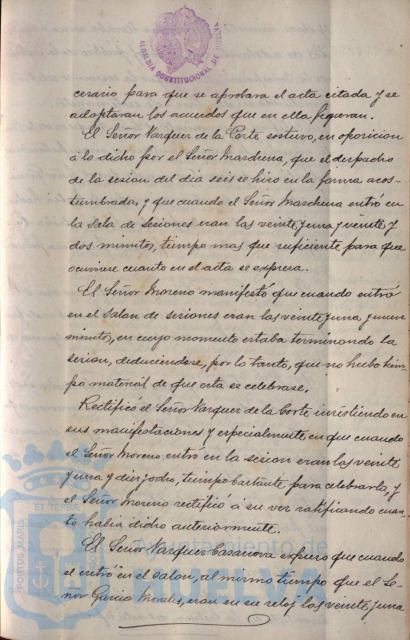 ALCALDIA CONSTITUCIONAL DE HUELVA
cesario para que se aprobara el acta citada y se
adoptaran los acuerdos que en ella figuran.
El Señor Vazquez de la Corte sostuvo, en oposicion
á lo dicho por el Señor Marchena, que el despacho
de la sesion del dia seis se hizo en la forma acos-
tumbrada, y que cuando el Señor Marchena entró en
la Sala de Sesiones eran las veinte y una y veinte y
dos minutos, tiempo mas que suficiente para que
ocurriese cuanto en el acta se expresa.
El Señor Moreno manifestó que cuando entró
en el salon de sesiones eran las veinte y una y nueve
minutos, en cuyo momento estaba terminando la
sesion, deduciendose, por lo tanto, que no hubo tiem-
po material de que esta se celebrase.
Rectificó el Señor Vazquez de la Corte insistiendo en
sus manifestaciones y especialmente en que cuando
el Señor Moreno entró en la sesion eran las veinte
y una y diez, tiempo bastante para celebrarla, y
el Señor Moreno rectificó á su vez ratificando cuan-
to habia dicho anteriormente.
El Señor Vazquez Casanova expuso que cuando
el entró en el salon, al mismo tiempo que el Se-
ñor Garcia Morales, eran en su reloj las veinte y una
PORTUS MARIS
ET TERRÆ
Ayuntamiento de
HUELVA